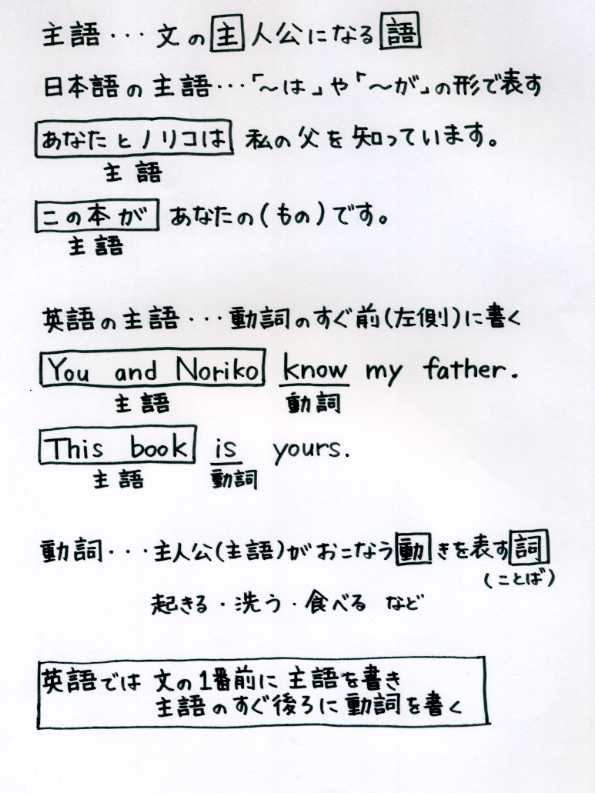 主語・・・文の主人公になる語
日本語の主語・・・「～は」や「～が」の形で表す
あなたとノリコは 私の父を知っています。
主語
この本が あなたの(もの)です。
主語
英語の主語・・・動詞のすぐ前(左側)に書く
You and Noriko know my father.
主語 動詞
This book is yours.
主語 動詞
動詞・・・主人公(主語)がおこなう動きを表す詞
(ことば)
起きる・洗う・食べる など
英語では 文の1番前に 主語を書き
主語のすぐ後ろに動詞を書く